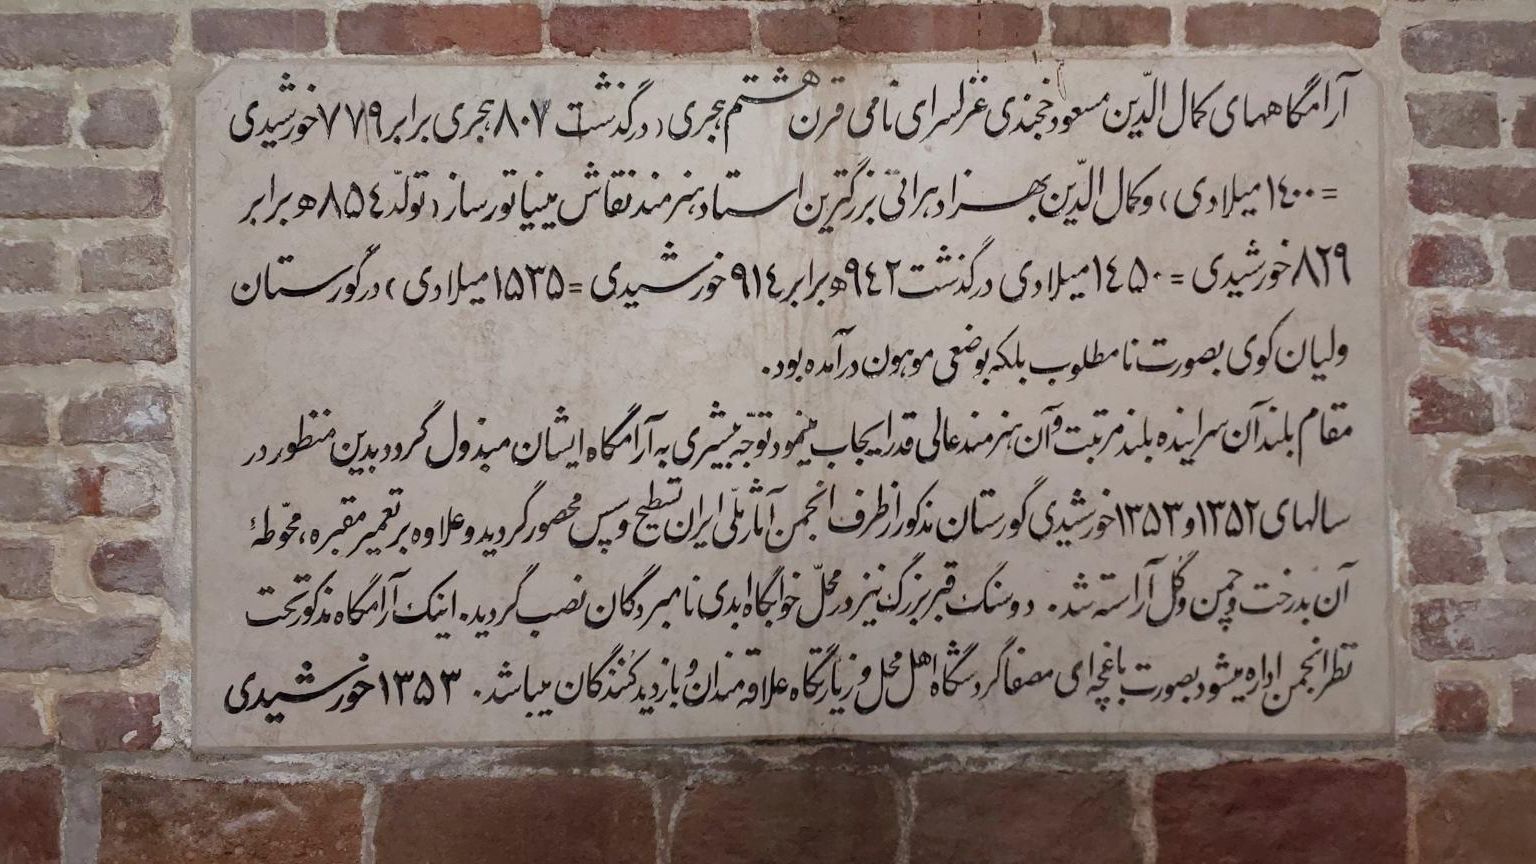 آرامگاههای کمال الدّین مسعود خجندی غزلسرای نامی قرن هشتم هجری (درگذشت ۸۰۷ هجری برابر ۷۷۹ خورشیدی
= ۱۴۰۰ میلادی) و کمال الدّین بهزاد هراتی بزرگترین استاد هنرمند نقاش مینیاتور ساز (تولّد ۸۵٤ ه برابر
۸۲۹ خورشیدی = ۱٤۵۰ میلادی درگذشت ۹٤۲ ه برابر ۹۱٤ خورشیدی = ۱۵۳۵ میلادی) در گورستان
ولیان کوی بصورت نامطلوب بلکه بوضعی موهون درآمده بود.
مقام بلند آن سراینده بلند مرتبت و آن هنرمند عالی قدر ایجاب مینمود توجّه بیشتری به آرامگاه ایشان مبذول گردد بدین منظور در
سالهای ۱۳۵۲ و ۱۳۵۳ خورشیدی گورستان مذکور از طرف انجمن آثار ملّی ایران تسطیح و سپس محصور گردید و علاوه بر تعمیر مقبره، محوّطهٔ
آن بدرخت و چمن و گل آراسته شد. دو سنگ قبر بزرگ نیز در محلّ خوابگاه ابدی نامبردگان نصب گردید. اینک آرامگاه مذکور تحت
نظر انجمن اداره میشود بصورت باغچه ای مصفا گردشگاه اهل محل و زیارتگاه علاقه مندان و بازدید کنندگان میباشد. ۱۳۵۳ خورشیدی